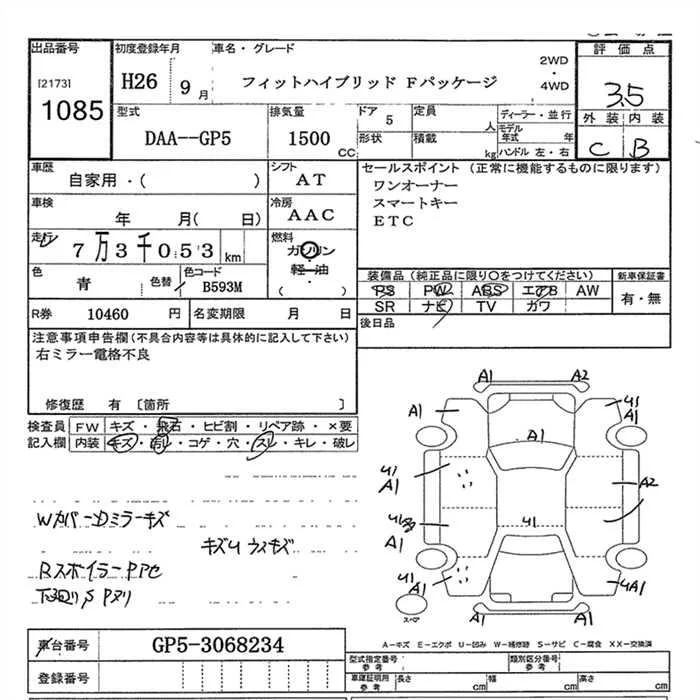 出品番号 初度登録年月 車名・グレード 評価点
[2173] 1085
H26 9月 フィットハイブリッド Fパッケージ 2WD・4WD 3.5
外装 内装
C B
型式 排気量 ドア 定員 ディーラー・並行
DAA--GP5 1500CC 5 人 モデル年式 年
形状 積載 kg ハンドル 左・右
車歴 シフト セールスポイント(正常に機能するものに限ります)
自家用・( ) AT ワンオーナー
スマートキー
ETC
車検 冷房
年 月(日) AAC
走行 燃料
7万3千053km ガソリン・軽油
( )
色 色替 色コード 装備品(純正品に限り○をつけてください) 新車保証書
青 B593M PS PW ABS エアB AW 有・無
SR ナビ TV カワ
R券 10460円 名変期限 月 日 後日品
注意事項申告欄(不具合内容等は具体的に記入して下さい)
右ミラー電格不良
修復歴 有 〔箇所 〕
検査員 FW キズ・飛石・ヒビ割・リペア跡・×要
記入欄 内装 キズ・汚レ・コゲ・穴・スレ・キレ・破レ
Wカバー・Dミラーキズ
キズU ウスキズ
Rスポイラー
A1 A2
A1 U1 A1
A1
U1 A1 A2
U1 A1 U1
U1 A1 U A1
スペア
A-キズ E-エクボ U-凹み W-補修跡 S-サビ C-腐食 XX-交換済
車台番号 GP5-3068234
登録番号
型式指定番号 参考 類別区分番号 参考
車庫証明用 参考 長さ cm 幅 cm 高さ cm